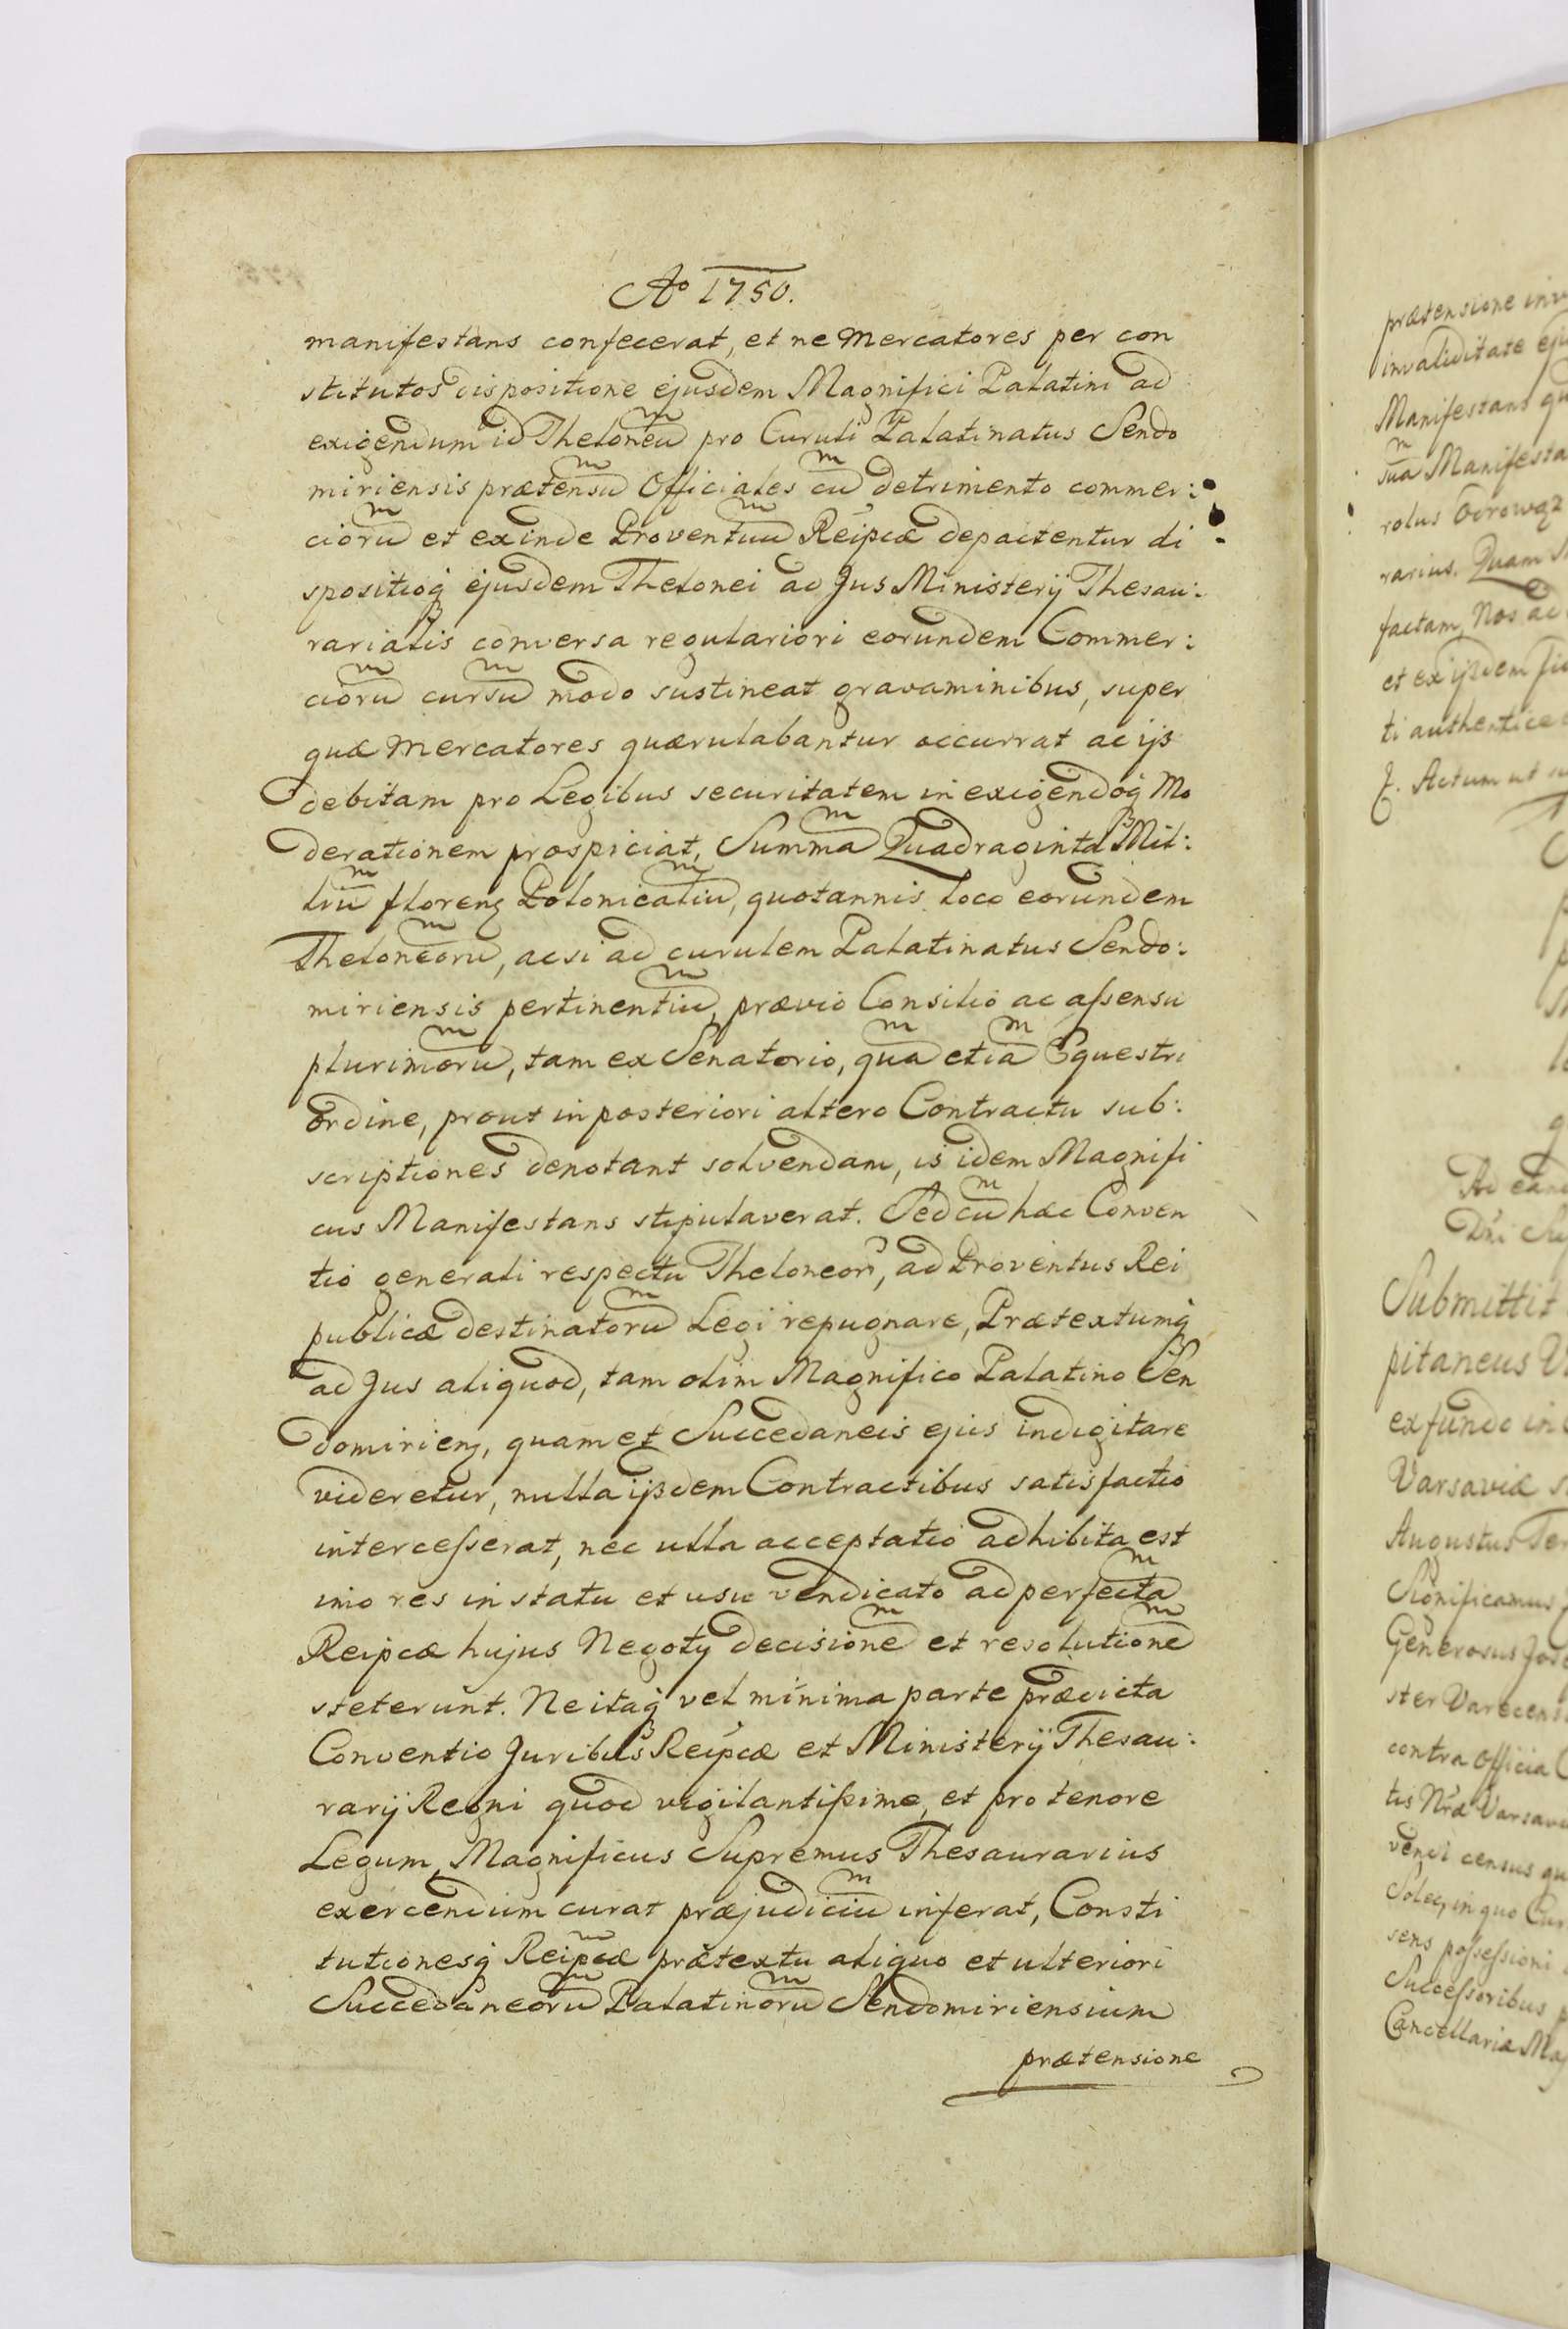 Ao 1750.
manifestans confecerat, et ne Mercatores per con
stitutos dispositione ejusdem Magnifici Palatini ad
exigendum id Theloneu͞m pro Curuli Palatinatus Sendo
miriensis prætensu͞m Officiales cu͞m detrimento commer:
cioru͞m et exinde Proventuu͞m Reipcæ depactentur di
spositioq ejusdem Thelonei ad Jus Ministerÿ Thesau:
rarialis conversa regulariori eorundem Commer:
cioru͞m cursu͞m modo sustineat gravaminibus, super
quæ Mercatores quærulabantur occurrat ac ijs
debitam pro Legibus securitatem in exigendoq Mo
derationem prospiciat, Summa͞m Quadraginta Mil:
liu͞m floren Polonicaliu͞m, quotannis loco eorundem
Theloneoru͞m, acsi ad curulem Palatinatus Sendo:
miriensis pertinentiu͞m, prævio Consilio ac assensu
plurimoru͞m, tam ex Senatorio, qua͞m etia͞m Equestri
ordine, prout in posteriori altero Contractu sub:
scriptiones denotant solvendam, is idem Magnifi
cus Manifestans stipulaverat. Sed cu͞m hæc Conven
tio generali respectu Theloneor, ad Proventus Rei
publicæ destinatoru͞m Legi repugnare, Prætextumq
ad Jus aliquod, tam olim Magnifico Palatino Sen
domirien, quam et Succedaneis ejus indigitare
videretur, nulla ijsdem Contractibus satisfactio
intercesserat, nec ulla acceptatio adhibita est
imo res in statu et usu vendicato ad perfecta͞m
Reipcæ hujus Negotÿ decisione͞m et resolutione͞m
steterunt. Ne itaq vel minima parte prædicta
Conventio Juribus Reipcæ et Ministerÿ Thesau:
rarÿ Regni quod vigilantissime, et pro tenore
Legum, Magnificus Supremus Thesaurarius
exercendum curat præjudiciu͞m inferat, Consti
tutionesq Reipcæ prætextu aliquo et ulteriori
Succedaneoru͞m Palatinoru͞m Sendomiriensium
prætensione
prætensione
invaliditate
Manifestans
sua͞m Manifesta
rolus Odrowąz
rarius. Quam
factam, Nos
et ex ijsdem
ti authentice
Actum ut
Submittit
pitaneus
ex fundo in
Varsaviæ
Augustus
Significamus
Generosus
ster Varecens
contra Officia
tis Nræ Varsav
census
in quo
sens possessioni
Successoribus
Cancellaria